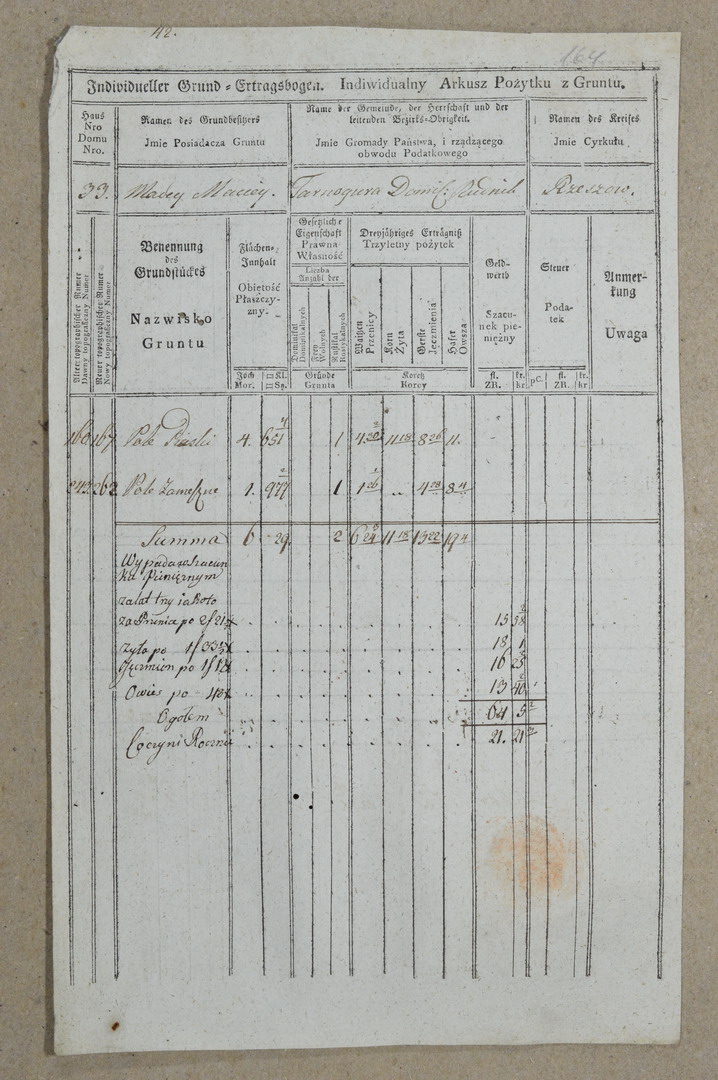 42.
164
Individueller Grund-Ertragsbogen. Indiwidualny Arkusz Pożytku z Gruntu.
Haus Nro Domu Nro.
Namen des Grundbesitzers
Jmie Posiadacza Gruntu
Name der Gemeinde, der Herrschaft und der
leitenden Bezirks-Obrigkeit.
Jmie Gromady Państwa, i rządzącego
obwodu Podatkowego
Namen des Kreises
Jmie Cyrkułu
33. Madey Maciey. Tarnogura Domi: Rudnik Rzeszow.
Alter topographischer Numer
Dawny topograficzny Numer
Neuer topographischer Numer
Nowy topograficzny Numer
Benennung
des
Grundstückes
Nazwisko
Gruntu
Flächen-
Jnnhalt
Obiętość
Płaszczy-
zny.
Joch Mor.
□ Kl. □ Sg.
Gesetzliche
Eigenschaft
Prawna
Własność
Liczba
Anzahl der
Dominikal
Dominikalnych
Frey
Wolnych
Rustikal
Rustykalnych
Gründe
Grunta
Dreyjähriges Erträgniß
Trzyletny pożytek
Waitzen
Przenicy
Korn
Żyta
Gerste
Jęczmienia
Hafer
Owsza
Koretz
Korcy
Geld-
werth
Szacu-
nek pie-
niężny
fl. ZR.
kr.
Steuer
Poda-
tek
pC.
fl. ZR.
kr.
Anmer-
kung
Uwaga
167 Pole 4. 651 1 11 18 8 26 11.
262 Pole 1. 977 1 1 .. 4 28 8 4
Summa 6 29. 2 6 11 18 13 22 19 4
Wypada w Szacun
ku Pieniężnym
za lat try iako to
za 15 38
Zyta po 1f 18 1
Jęczmion po 1f 16 25
Owies po 13 40
Ogołem 64 5
Co czyni Rocznie 21. 21